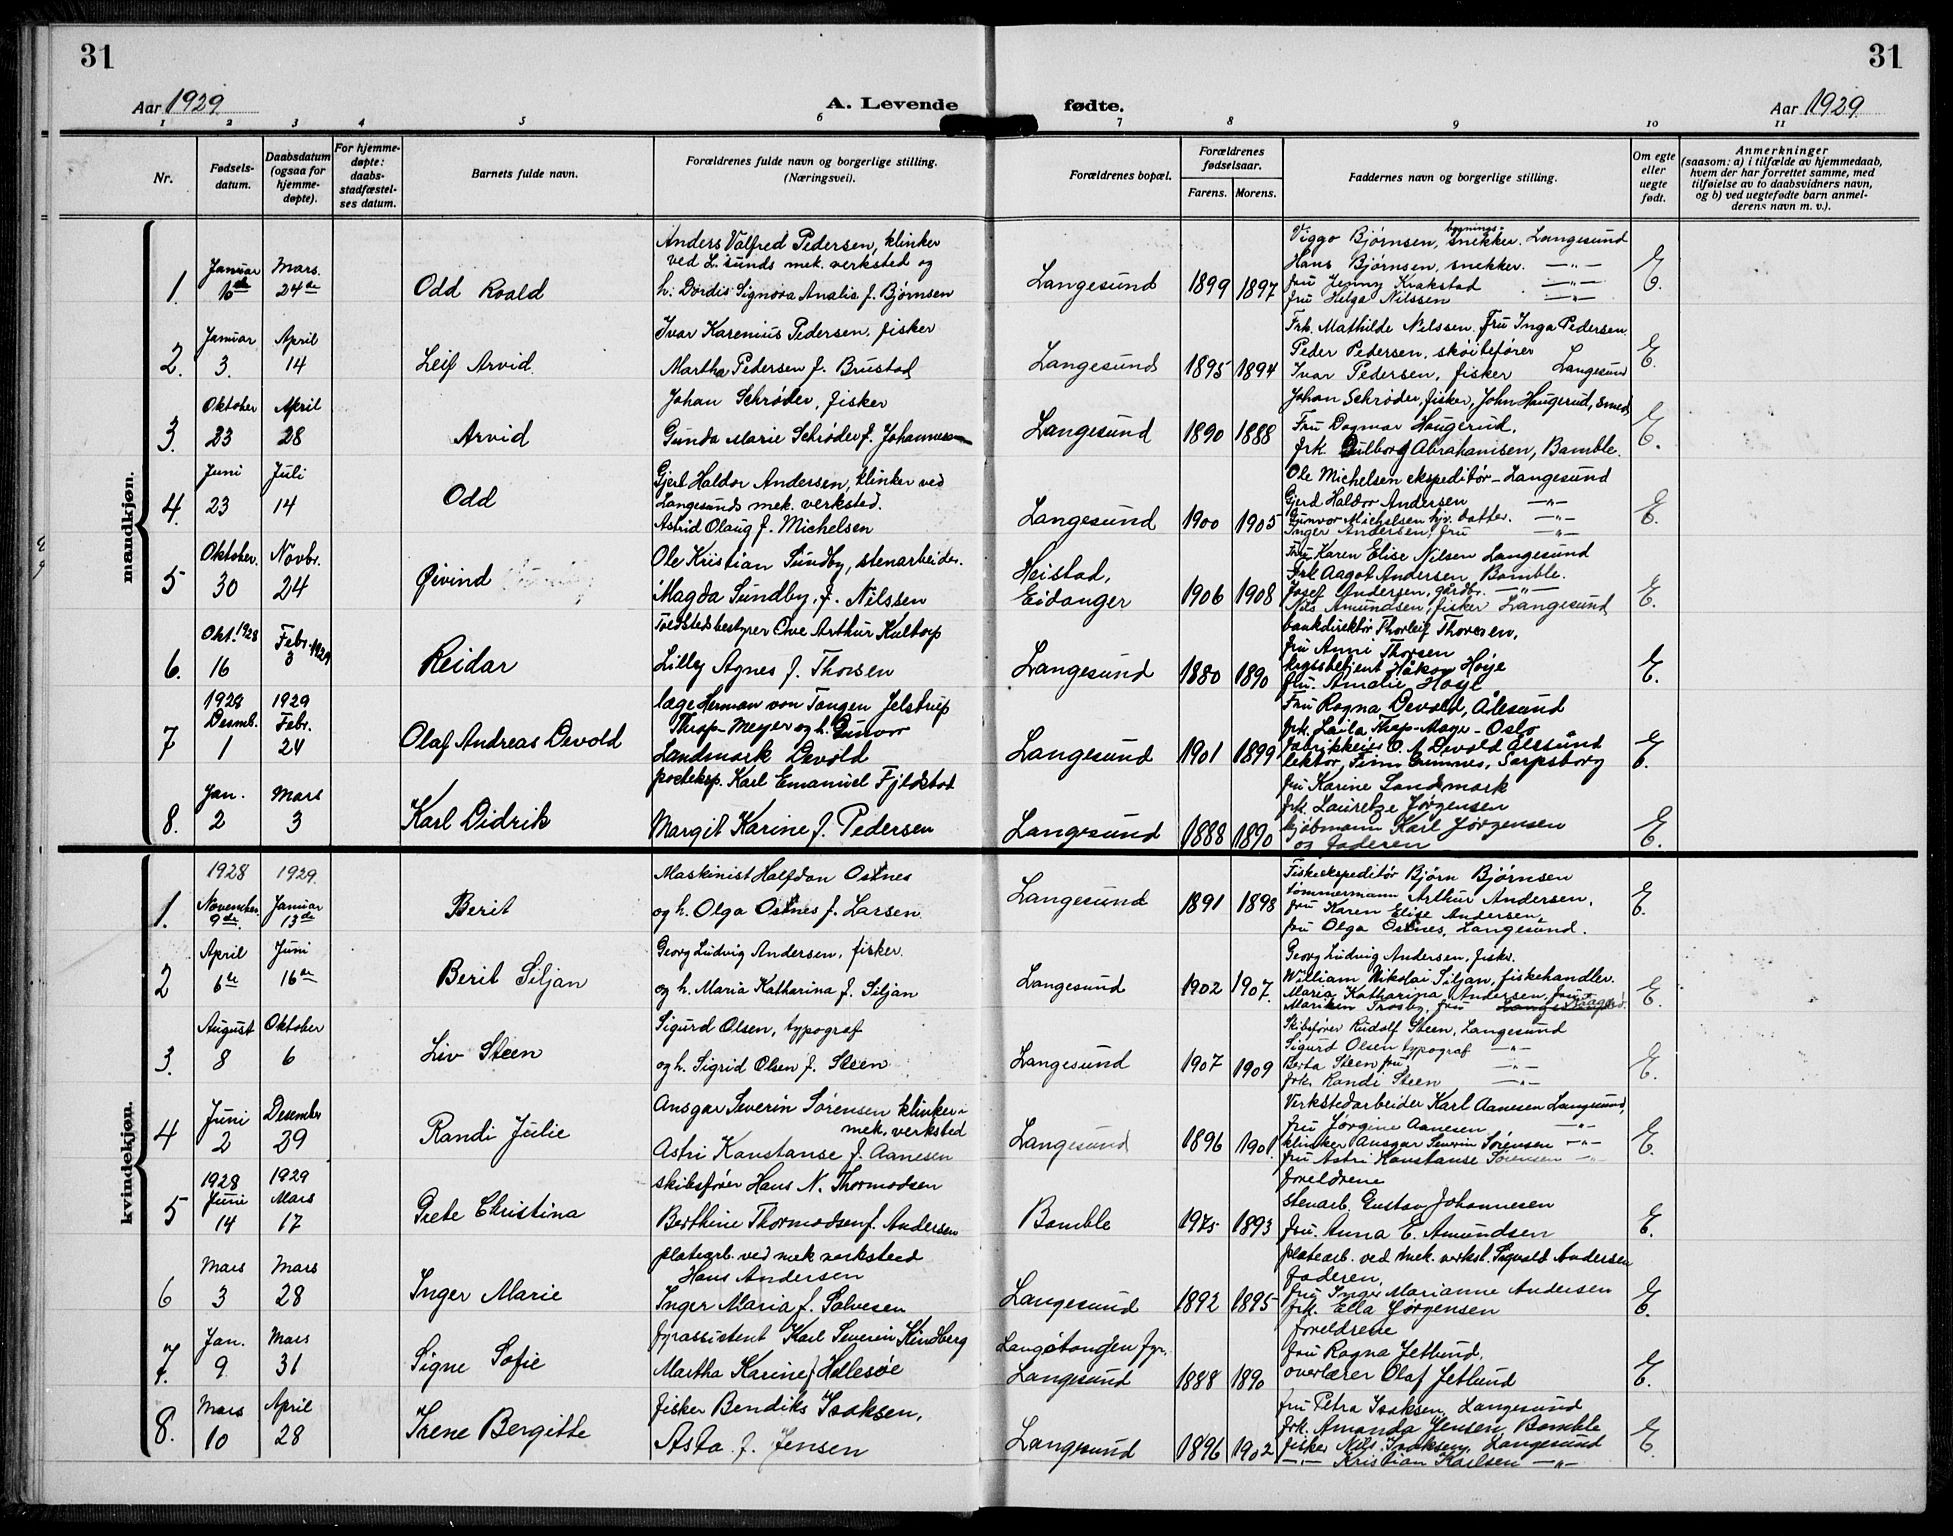 31
31
Aar 1929
A. Levende fødte.
Aar 1929
1 2 3 4 5 6 7 8 9 10 11
Nr.
Fødsels-
datum.
Daabsdatum
(ogsaa for
hjemme-
døpte).
For hjemme-
døpte:
daabs-
stadfæstel-
ses datum.
Barnets fulde navn.
Forældrenes fulde navn og borgerlige stilling.
(Næringsvei).
Forældrenes bopæl.
Forældrenes
fødselsaar.
Farens. Morens.
Faddernes navn og borgerlige stilling.
Om egte
eller
uegte
født.
Anmerkninger
(saasom: a) i tilfælde av hjemmedaab,
hvem der har forrettet samme, med
tilføielse av to daabsvidners navn,
og b) ved uegtefødte barn anmel-
derens navn m. v.).
mandkjøn.
1. Januar 16de Mars. 24de
Odd Roald
Anders Valfred Pedersen, klinker
ved L.sunds mek. verksted og
h. Dordis Signora Analia f. Bjørnsen
Langesund 1899 1897
Viggo Bjørnsen, bygnings-snekker. Langesund
Hans Bjørnsen, snekker. —"—
fru Jenny Krakstad —"—
fru Helga Nilssen —"—
E.
2. Januar 3. April 14
Leif Arvid.
Ivar Karenius Pedersen, fisker
Martha Pedersen f. Brustad
Langesund 1895 1894
Frk. Mathilde Nilssen. Fru Inga Pedersen.
Peder Pedersen, skøitefører
Ivar Pedersen, fisker Langesund
E.
3. Oktober 23 April 28
Arvid
Johan Schrøder, fisker
Gunda Marie Schrøder f. Johannesen
Langesund 1890 1888
Johan Schrøder, fisker, John Haugerud, smed
Fru Dagmar Haugerud.
frk. Gulborg Abrahamsen, Bamble.
E.
4. Juni 23 Juli 14
Odd
Gjert Haldor Andersen, klinker ved
Langesunds mek. verksted.
Astrid Olaug f. Michelsen
Langesund 1900 1905
Ole Michelsen ekspeditør – Langesund
Gjerd Haldor Andersen —"—
Gunvor Michelsen hjv. datter. —"—
Inger Andersen, fru —"—
E.
5 Oktober. 30 Novbr. 24
Øivind
Ole Kristian Sundby, stenarbeider.
Magda Sundby, f. Nilssen
Heistad,
Eidanger 1906 1908
Fru Karen Elise Nilsen Langesund
Frk Aagot Andersen, Bamble.
Josef Andersen, gårdbr. —"—
Nils Amundsen, fisker Langesund
E.
6. Okt. 1928 16 Febr. 1929 3
Reidar
Toldstedsbestyrer Ove Arthur Kultorp
Lilly Agnes f. Thorsen
Langesund 1880 1890
bankdirektør Thorleif Thoresen,
fru Anni Thorsen
krysbetjent Håkon Høye
fru. Amalie Høye
E.
7 1928 Desmb. 1 1929 Febr. 24
Olaf Andreas Devold
læge Herman von Tangen Jelstrup
Thrap-Meyer og h. Gunvor
Landmark Devold
Langesund 1901 1899
Fru Ragna Devold, Ålesund
frk. Laila Thrap-Meyer – Oslo
fabrikkeier O. A Devold Ålesund
lektor, Finn Grimnes, Sarpsborg
E.
8. Jan. 2 Mars 3
Karl Didrik
posteksp. Karl Emanuel Fjeldstad
Margit Karine f. Pedersen
Langesund 1888 1890
fru Karine Landmark
frk. Lauretze Jørgensen
kjøbmann Karl Jørgensen
og faderen
E.
kvindekjøn.
1. 1928 November. 9de 1929. Januar 13de
Berit
Maskinist Halfdan Ostnes
og h. Olga Ostnes f. Larsen
Langesund 1891 1898
Fiskeekspeditør Bjørn Bjørnsen
tømmermann Arthur Andersen,
fru Karen Elise Andersen,
fru Olga Ostnes, Langesund.
E.
2 April 6te Juni 16de
Berit Siljan
Georg Ludvig Andersen, fisker
og h. Maria Katharina f. Siljan
Langesund 1902 1907.
Georg Ludvig Andersen, fisker.
William Nikolai Siljan, fiskehandler.
Maria Katharina Andersen, fru
Mariken Trosby, fru
E.
3. August 8 Oktober 6
Liv Steen
Sigurd Olsen, typograf
og h. Sigrid Olsen f. Steen
Langesund 1907 1909
Skibsfører Rudolf Steen, Langesund
Sigurd Olsen typograf —"—
Berta Steen fru —"—
frk. Randi Steen —"—
E.
4 Juni 2 Desember 29
Randi Julie
Ansgar Severin Sørensen klinker i
mek. verksted
Astri Konstanse f. Aanesen
Langesund 1896 1901.
Verkstedarbeider Karl Aanesen Langesund,
fru Jørgine Aanesen —"—
klinker Ansgar Severin Sørensen —"—
fru Astri Konstanse Sørensen —"—
E.
5 1928 Juni 14 1929 Mars 17
Grete Christina
skibsfører Hans N. Thormodsen
Berthine Thormodsen f. Andersen
Bamble 1893
foreldrene
stenarb. Gustav Johannesen
fru. Anna E. Amundsen
E.
6 Mars 3 Mars 28
Inger Marie
platearb. ved mek verksteed
Hans Andersen
Inger Maria f. Salvesen
Langesund 1892 1895
platearb. ved mek. verkst. Sigvald Andersen
faderen,
fru Inger Marianne Andersen
frk. Ella Jørgensen
E.
7. Jan. 9 Mars 31
Signe Sofie
fyrassistent Karl Severin Kindberg
Martha Karine f Hellesøe
Langøtangen fyr.
Langesund 1888 1890
foreldrene
fru Ragna Jetlund.
overlærer Olaf Jetlund
E.
8. Mars 10 April 28
Irene Bergitte
fisker Bendiks Isaksen,
Asta f. Jensen
Langesund 1896 1902
fru Petra Isaksen, Langesund
frk. Amanda Jensen, Bamble
fisker Nils Isaksen, Langesund
—"— Kristian Karlsen —"—
E.